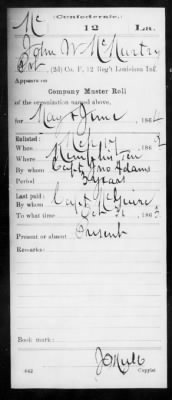 Mc (Confederate.)
12 La.
John W McMurtry
Pvt, (2d) Co. F, 12 Reg't Louisiana Inf.
Appears on
Company Muster Roll
of the organization named above,
for May & June, 1864
Enlisted:
When 17, 1862
Where Memphis Ten
By whom Capt Jno Adams
Period 3 years
Last paid:
By whom Capt McGuire
To what time Oct 31, 1863
Present or absent Present
Remarks:
Book mark:
642 Copyist